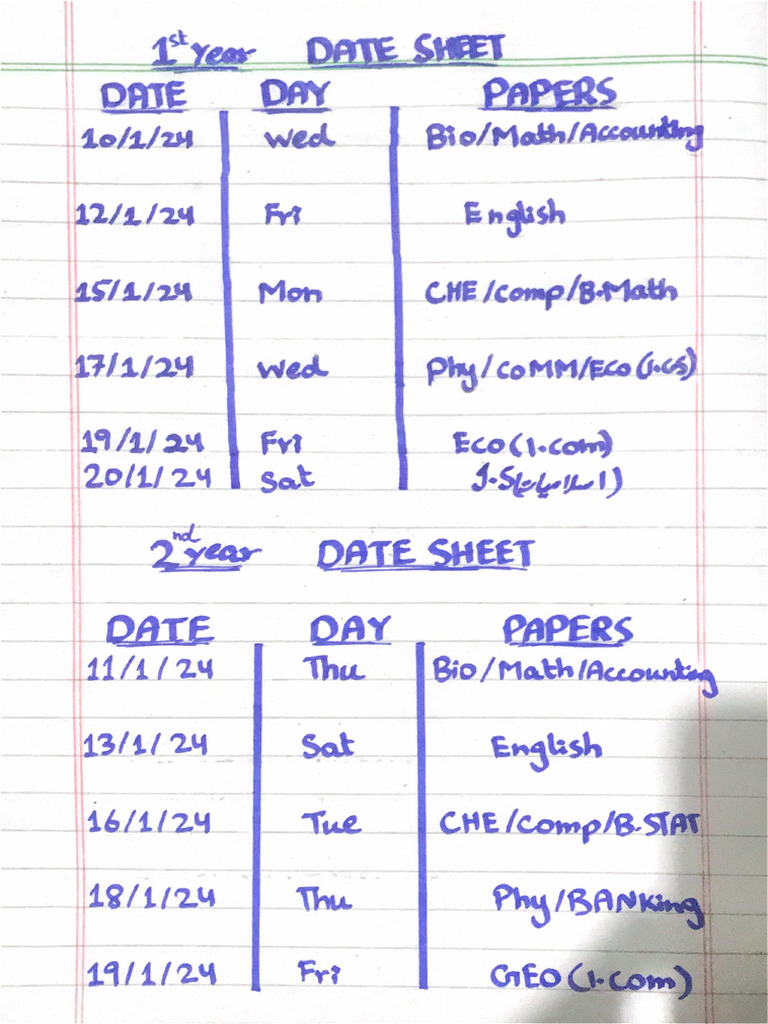 1st year DATE SHEET
DATE DAY PAPERS
10/1/24 Wed Bio/Math/Accounting
12/1/24 Fri English
15/1/24 Mon CHE/Comp/B.Math
17/1/24 Wed Phy/COMM/ECO(I.CS)
19/1/24 Fri Eco(I.com)
20/1/24 Sat I.S(اسلامیات)
2nd year DATE SHEET
DATE DAY PAPERS
11/1/24 Thu Bio/Math/Accounting
13/1/24 Sat English
16/1/24 Tue CHE/Comp/B.STAT
18/1/24 Thu Phy/BANKing
19/1/24 Fri GEO(I.com)